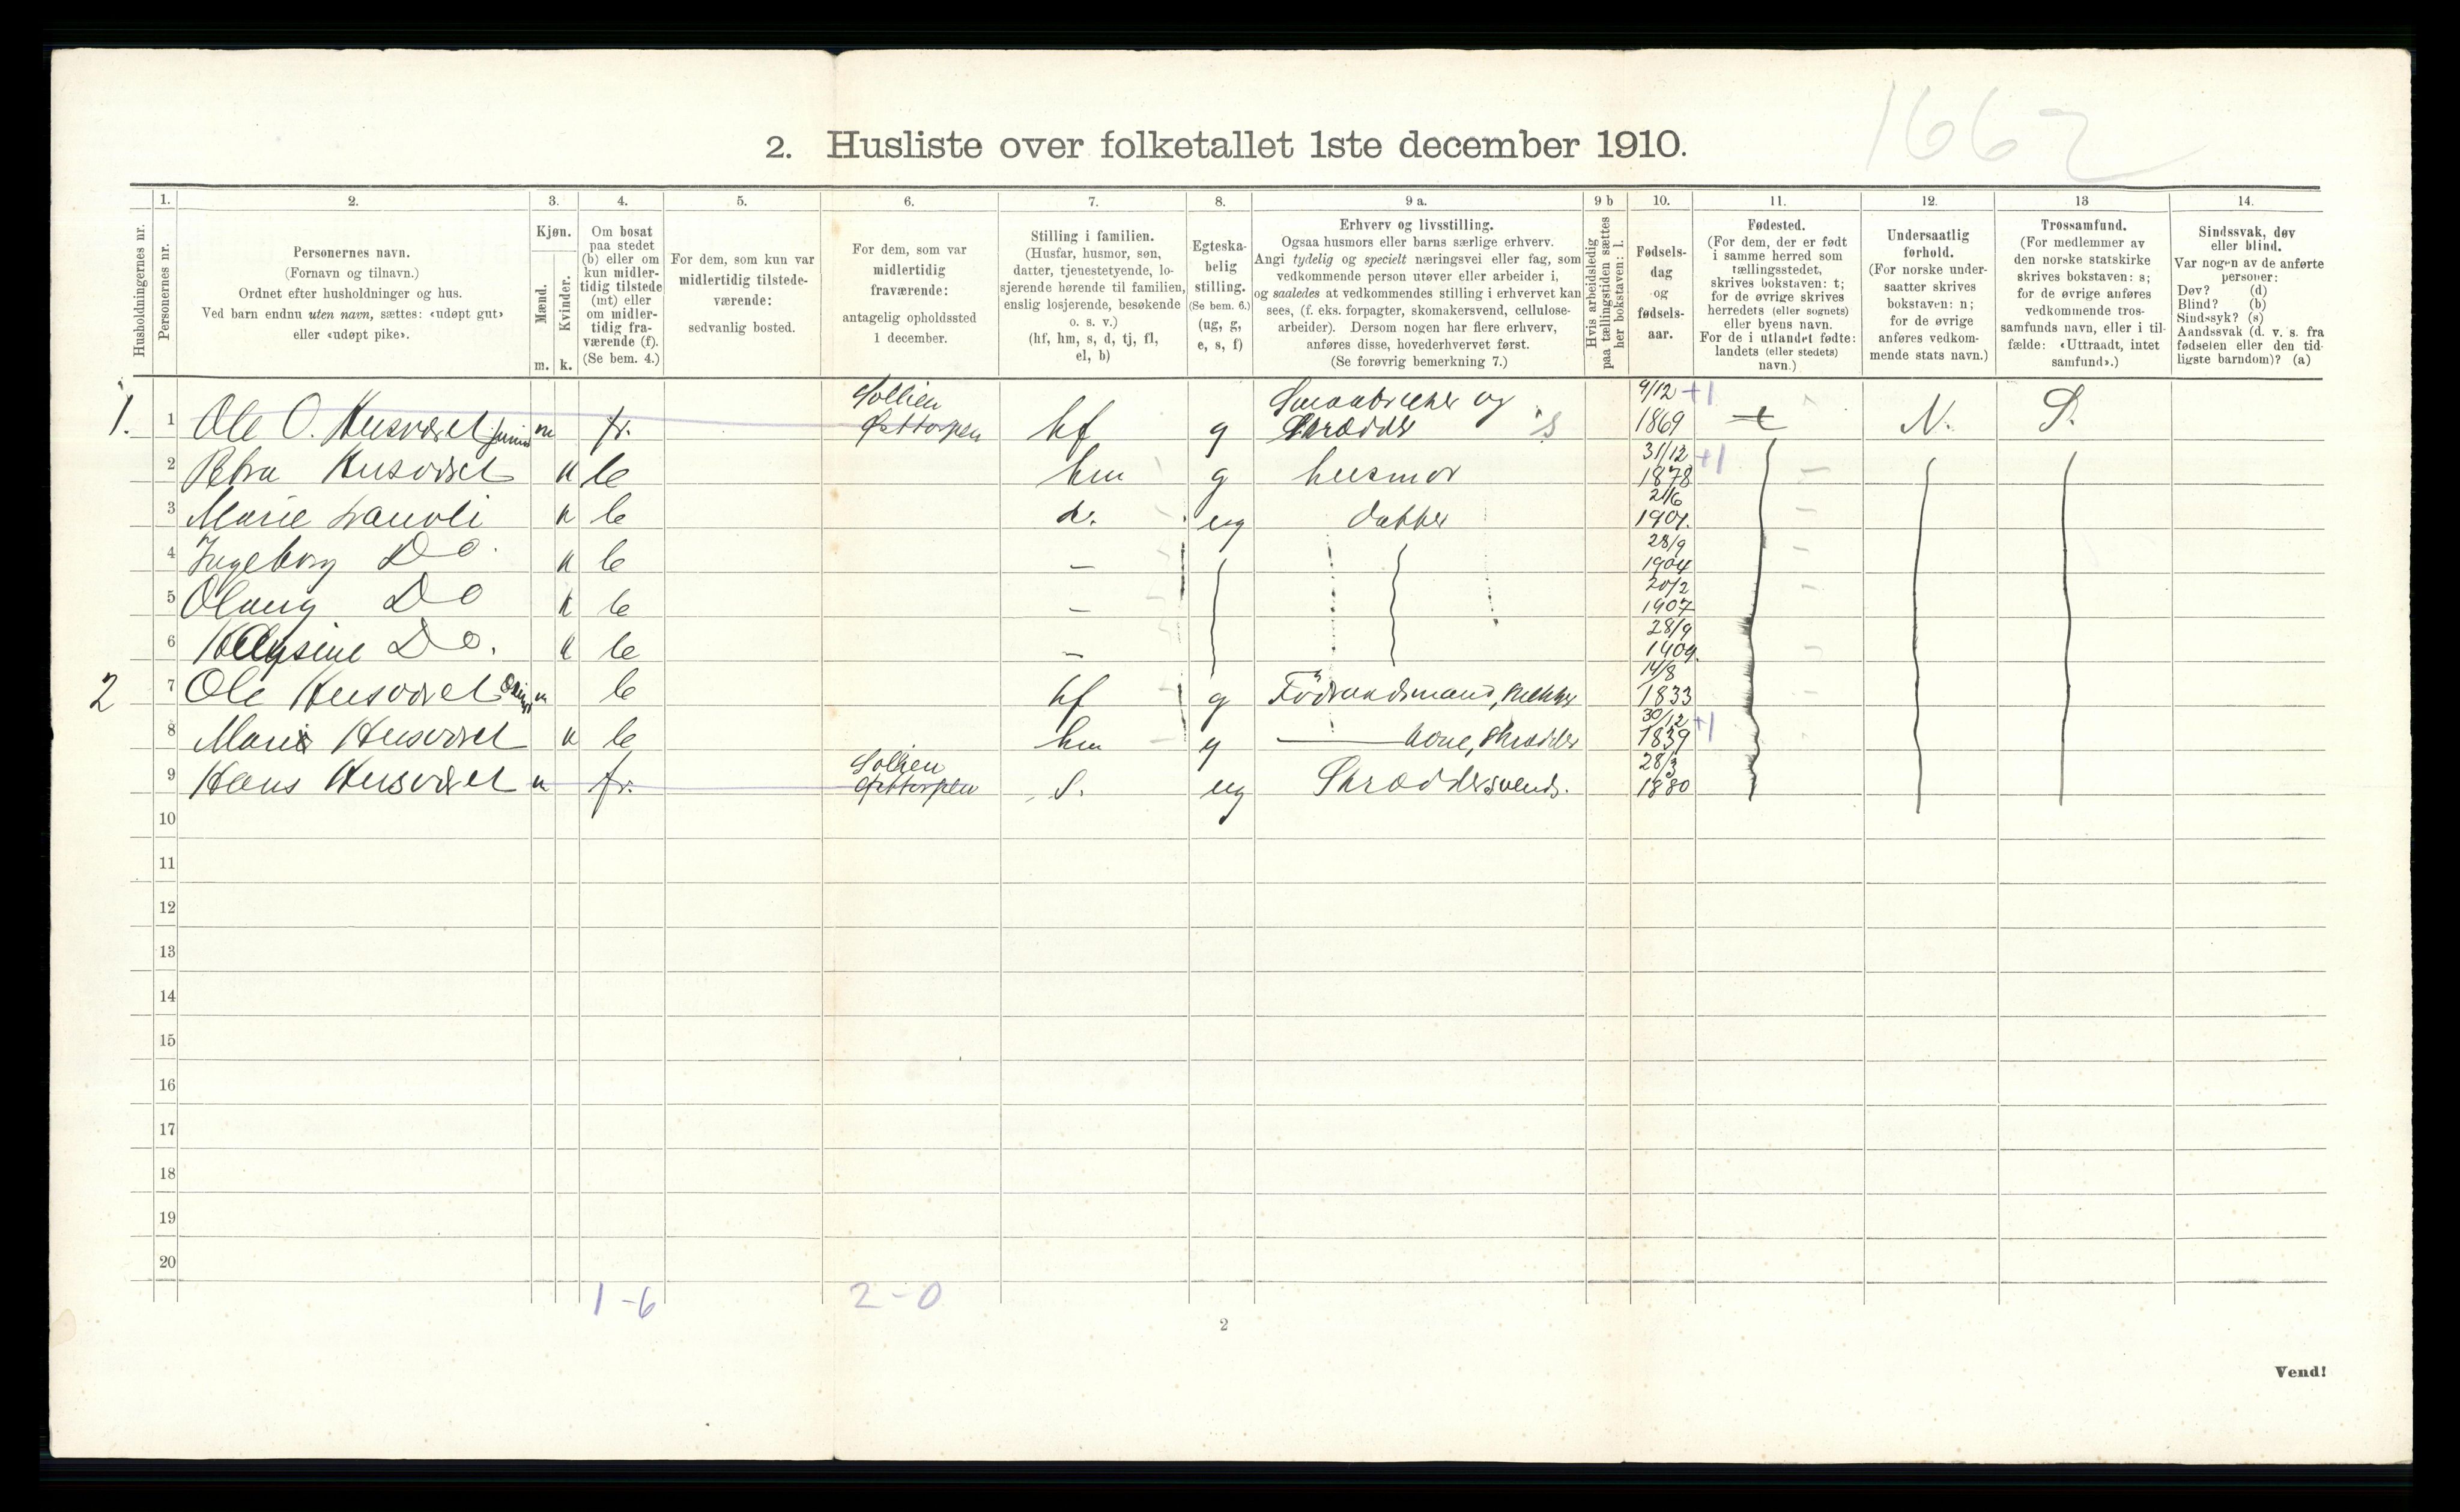 1662
2. Husliste over folketallet 1ste december 1910.
Husholdningernes nr.
1.
Personernes nr.
2.
Personernes navn.
(Fornavn og tilnavn.)
Ordnet efter husholdninger og hus.
Ved barn endnu uten navn, sættes: «udøpt gut»
eller «udøpt pike».
3.
Kjøn.
Mænd.
Kvinder.
m. k.
4.
Om bosat
paa stedet
(b) eller om
kun midler-
tidig tilstede
(mt) eller
om midler-
tidig fra-
værende (f).
(Se bem. 4.)
5.
For dem, som kun var
midlertidig tilstede-
værende:
sedvanlig bosted.
6.
For dem, som var
midlertidig
fraværende:
antagelig opholdssted
1 december.
7.
Stilling i familien.
(Husfar, husmor, søn,
datter, tjenestetyende, lo-
sjerende hørende til familien,
enslig losjerende, besøkende
o. s. v.)
(hf, hm, s, d, tj, fl,
el, b)
8.
Egteska-
belig
stilling.
(Se bem. 6.)
(ug, g,
e, s, f)
9 a.
Erhverv og livsstilling.
Ogsaa husmors eller barns særlige erhverv.
Angi tydelig og specielt næringsvei eller fag, som
vedkommende person utøver eller arbeider i,
og saaledes at vedkommendes stilling i erhvervet kan
sees, (f. eks. forpagter, skomakersvend, cellulose-
arbeider). Dersom nogen har flere erhverv,
anføres disse, hovederhvervet først.
(Se forøvrig bemerkning 7.)
9 b
Hvis arbeidsledig
paa tællingstiden sættes
her bokstaven: l.
10.
Fødsels-
dag
og
fødsels-
aar.
11.
Fødested.
(For dem, der er født
i samme herred som
tællingsstedet,
skrives bokstaven: t;
for de øvrige skrives
herredets (eller sognets)
eller byens navn.
For de i utlandet fødte:
landets (eller stedets)
navn.)
12.
Undersaatlig
forhold.
(For norske under-
saatter skrives
bokstaven: n;
for de øvrige
anføres vedkom-
mende stats navn.)
13
Trossamfund.
(For medlemmer av
den norske statskirke
skrives bokstaven: s;
for de øvrige anføres
vedkommende tros-
samfunds navn, eller i til-
fælde: «Uttraadt, intet
samfund».)
14.
Sindssvak, døv
eller blind.
Var nogen av de anførte
personer:
Døv? (d)
Blind? (b)
Sindssyk? (s)
Aandssvak (d. v. s. fra
fødselen eller den tid-
ligste barndom)? (a)
1. 1 Ole O. Husværet junior m fr. Sollien hf g Smaabruker og Skrædder s 9/12 1869 +1 t N. S.
2 Petra Husværet k b hm g husmor 31/12 1878 +1
3 Marie k b d. ug datter 21/6 1901.
4 Ingeborg Do. k b — 28/9 1904
5 Olaug Do k b — 20/2 1907
6 Do. k b — 28/9 1909.
2 7 Ole Husværet m b hf g 14/8 1833
8 Mari Husværet k b hm g — kone, Skrædder 30/12 1839 +1
9 Hans Husværet m fr. Sollien S. ug Skræddersvend. 28/3 1880
10
11
12
13
14
15
16
17
18
19
20
1-6 2-0
2
Vend!